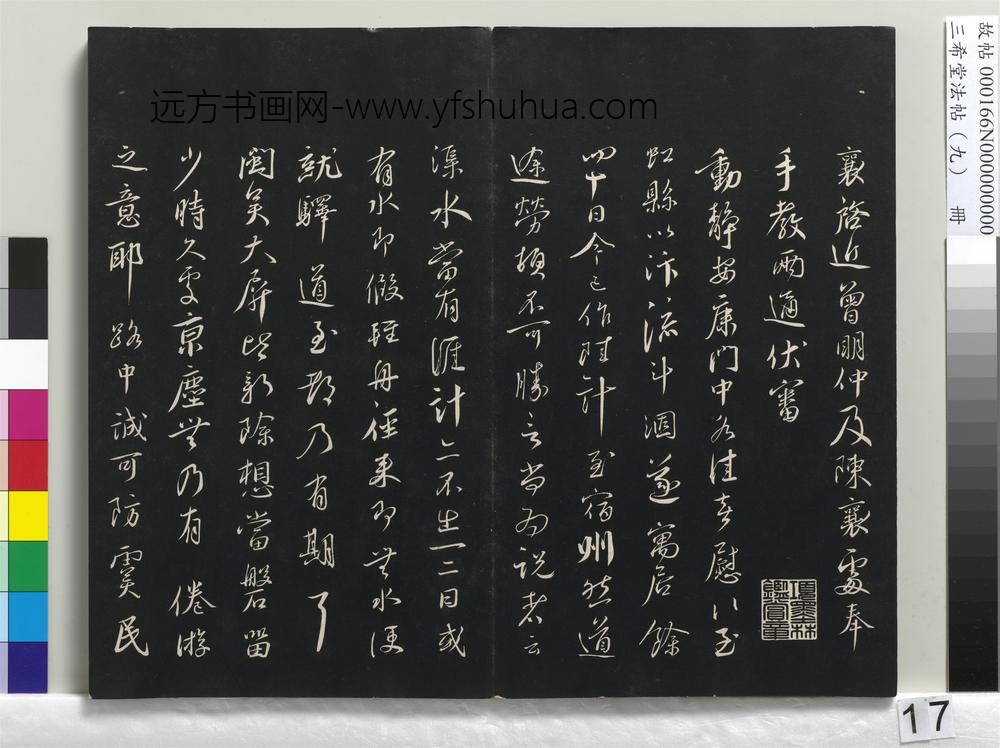 远方书画网-www.yfshuhua.com
故帖000166N000000000
三希堂法帖（九） 冊
襄啓近曾明仲及陳襄處奉
手教兩通伏審
動靜安康門中各佳喜慰〻至
虹縣以汴流斗涸遂寓居餘
四十日今已作陸計至宿州然道
途勞頓不可勝言尚為說者云
渠水當有涯計亦不出一二日或
有水即假輕舟徑來即無水便
就驛道至都乃有期耳
閩吳大屏皆新除想當磐留
少時久處京塵無乃有倦游
之意耶路中誠可防霣民
項墨林鑑賞章
17